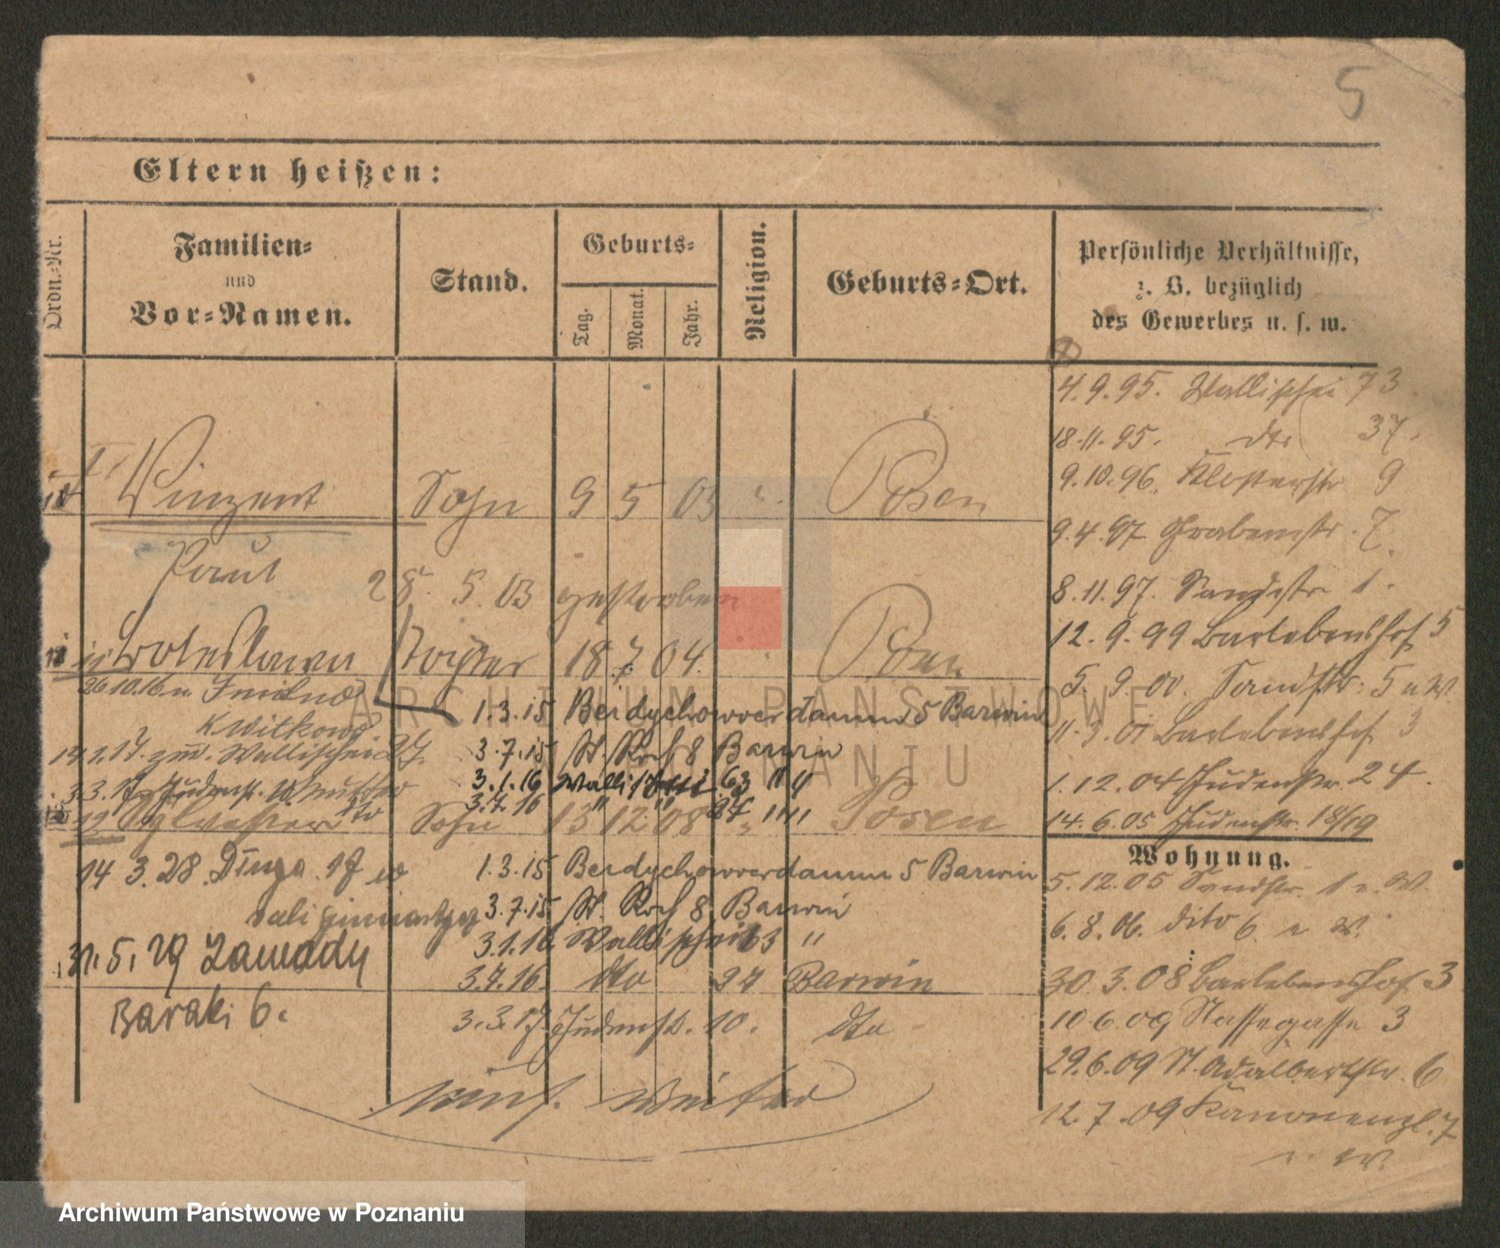 5
Eltern heißen:
Ordn.-Nr.
Familien-
und
Vor-Namen.
Stand.
Geburts-
Tag.
Monat.
Jahr.
Religion.
Geburts-Ort.
Persönliche Verhältnisse,
z. B. bezüglich
des Gewerbes u. s. w.
Vinzent Sohn 9 5 03 Posen
Paul 28. 5. 03 gestorben
Boleslawa Tochter 18 7 04. Posen
1.3.15 Berdychowerdamm 5 Barwin
K Witkows
3.7.15 St. Roch 8 Barwin
14.1.17. Wallischei
3.1.16 Wallischei 63 "
3.3.17 Judenstr. 10 Mutter
3.7.16 " " 27 "
Sylvester Sohn 13 12 08 " Posen
14 3. 28. Długa 17
1.3.15 Berdychowerdamm 5 Barwin
3.7.15 St. Roch 8. Barwin
3.1.16 Wallischei 63 "
31. 5. 29 Zawady
3.7.16. dto 27 Barwin
Baraki 6.
3.3.17. Judenstr. 10. dto
4.9.95. Wallischei 73
18.11.95. dto 37.
9.10.96. Klosterstr 9
9.4.97 Grabenstr. 7.
8.11.97. Sandstr 1.
12.9.99 Barlebenshof 5
5.9.00. Sandstr. 5
11.3.01 Barlebenshof 3
1.12.04 Judenstr. 24.
14.6.05 Judenstr. 18/19
Wohnung.
5.12.05 Sandstr. 1 n. W.
6.8.06. dito 6. n W.
30.3.08 Barlebenshof. 3
10.6.09 Nassegasse 3
29.6.09 St. Adalbertstr. 6
12.7.09 Kanonenpl. 7
n. W.
ARCHIWUM PAŃSTWOWE
W POZNANIU
Archiwum Państwowe w Poznaniu